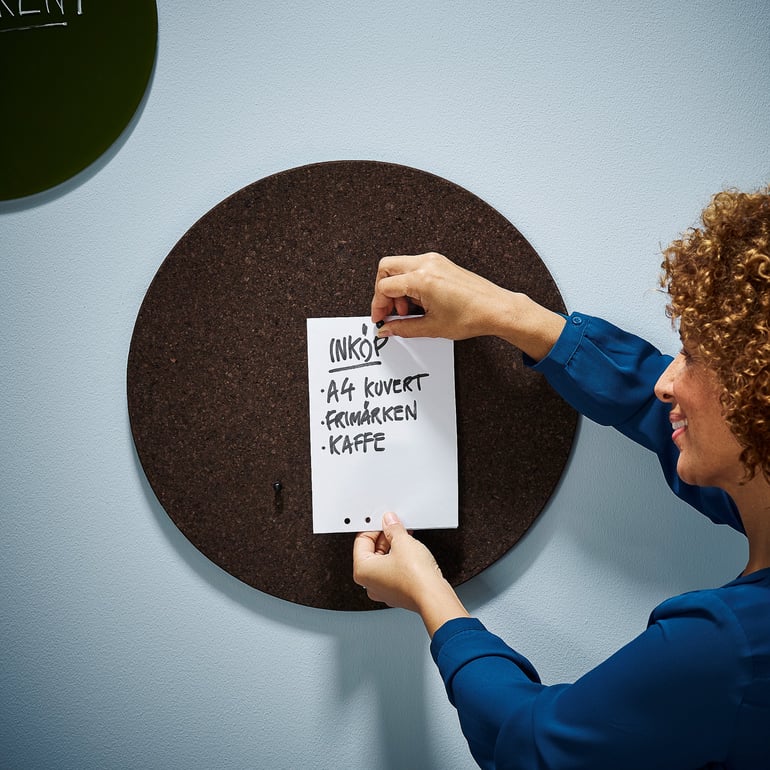 INKÖP
· A4 KUVERT
· FRIMÄRKEN
· KAFFE